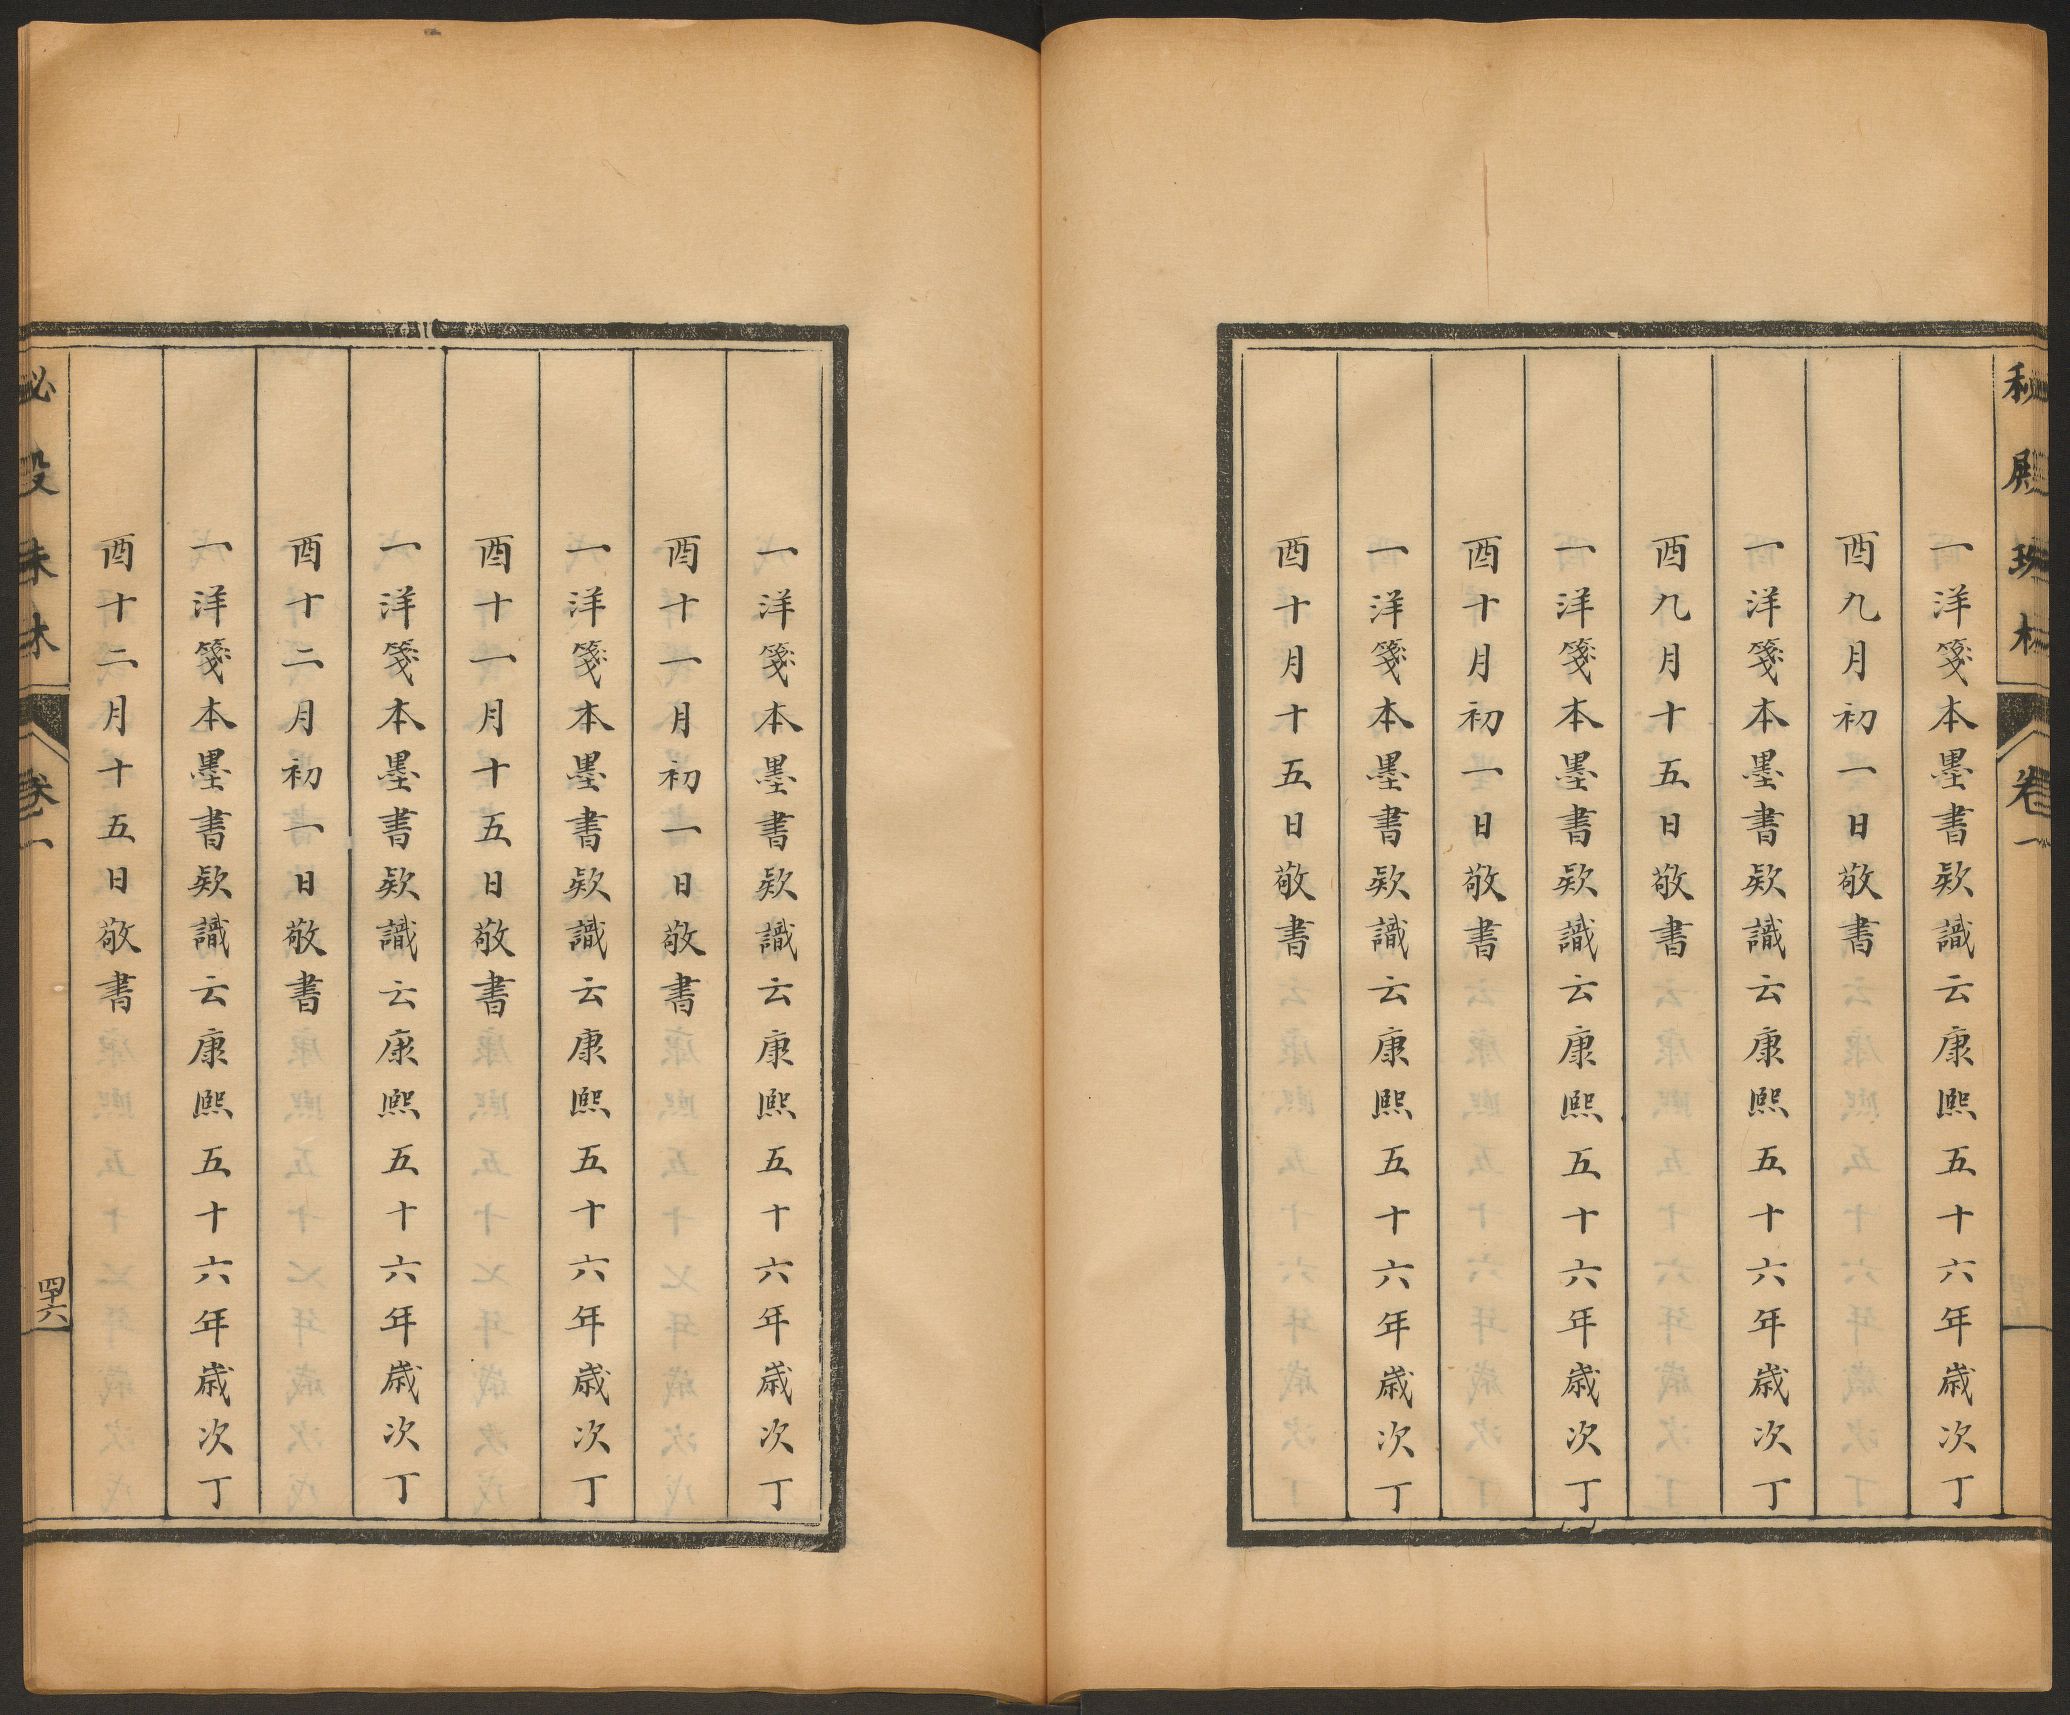 秘殿珠林
卷一
一洋箋本墨書欵識云康熙五十六年歲次丁
酉九月初一日敬書
一洋箋本墨書欵識云康熙五十六年歲次丁
酉九月十五日敬書
一洋箋本墨書欵識云康熙五十六年歲次丁
酉十月初一日敬書
一洋箋本墨書欵識云康熙五十六年歲次丁
酉十月十五日敬書
一洋箋本墨書欵識云康熙五十六年歲次丁
酉十一月初一日敬書
一洋箋本墨書欵識云康熙五十六年歲次丁
酉十一月十五日敬書
一洋箋本墨書欵識云康熙五十六年歲次丁
酉十二月初一日敬書
一洋箋本墨書欵識云康熙五十六年歲次丁
酉十二月十五日敬書
秘殿珠林
卷一
四十六